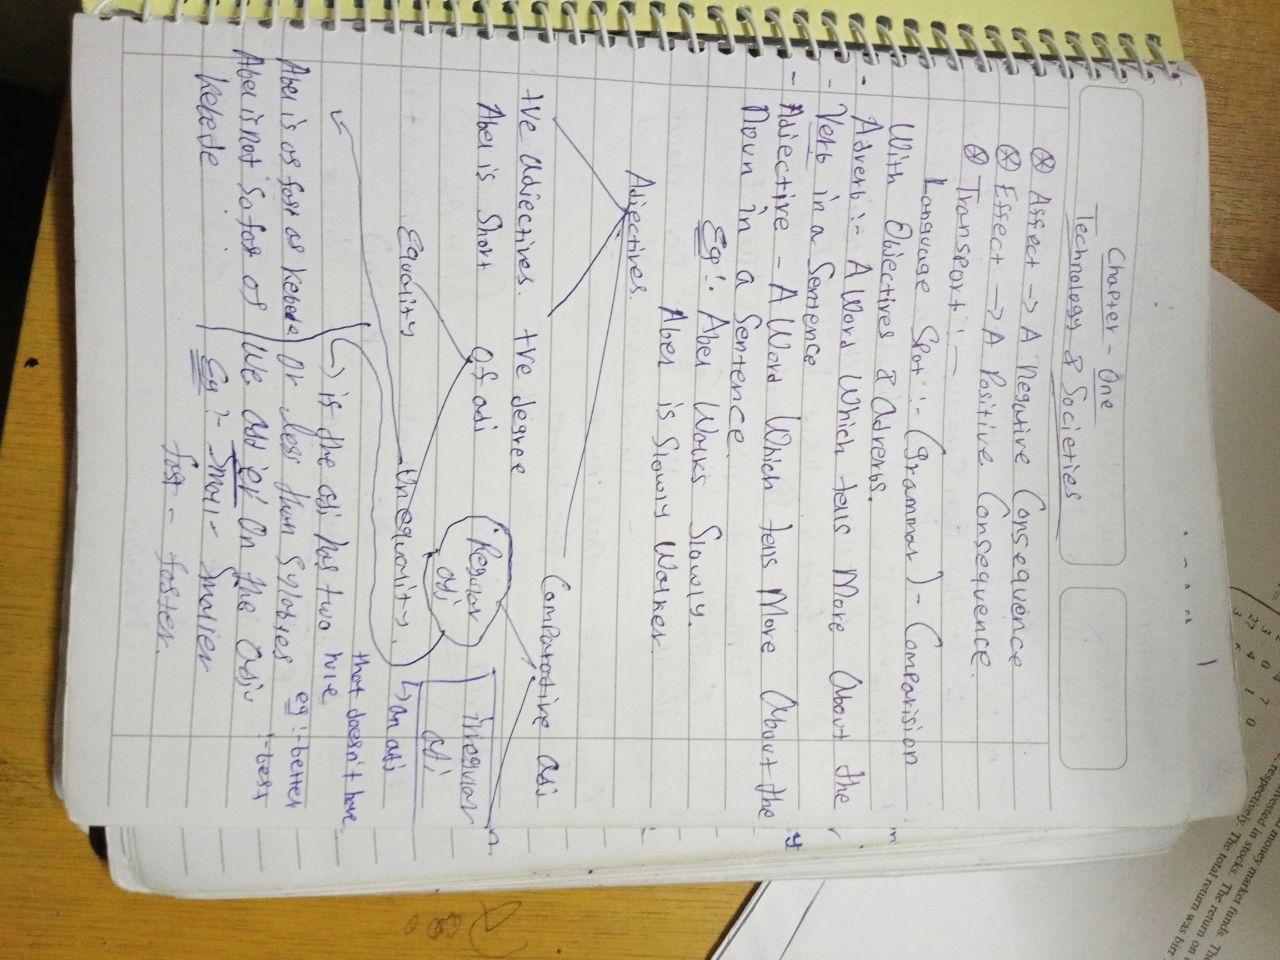 Chapter - One
Technology & Societies
⊗ Affect → A Negative Consequence
⊗ Effect → A Positive Consequence
⊗ Transport :—
Language Spot :- (Grammar) - Comparision
With Objectives & Adverbs.
- Adverb :- A Word Which tells More About the
- Verb in a Sentence
- Adjective - A Word Which tells More About the
Noun in a Sentence
Eg:- Aber Works Slowly.
Aber is Slowly Worker
Adjectives.
+ve adjectives. +ve degree Comparative adj
Aber is Short of adj Regular adj irregular adj
Equality Inequality.
↳ an adj
that doesn't have
rule
eg :- better
:- best
↳ is the adj has two
Aber is as fast as kebede or less than sylables
Aber is not so fas as We add er On the adj.
kebede Eg :- Small - Smaller
fast - faster.
1
money market funds. The
invested in stocks. The return on
respectively. The total return was birr